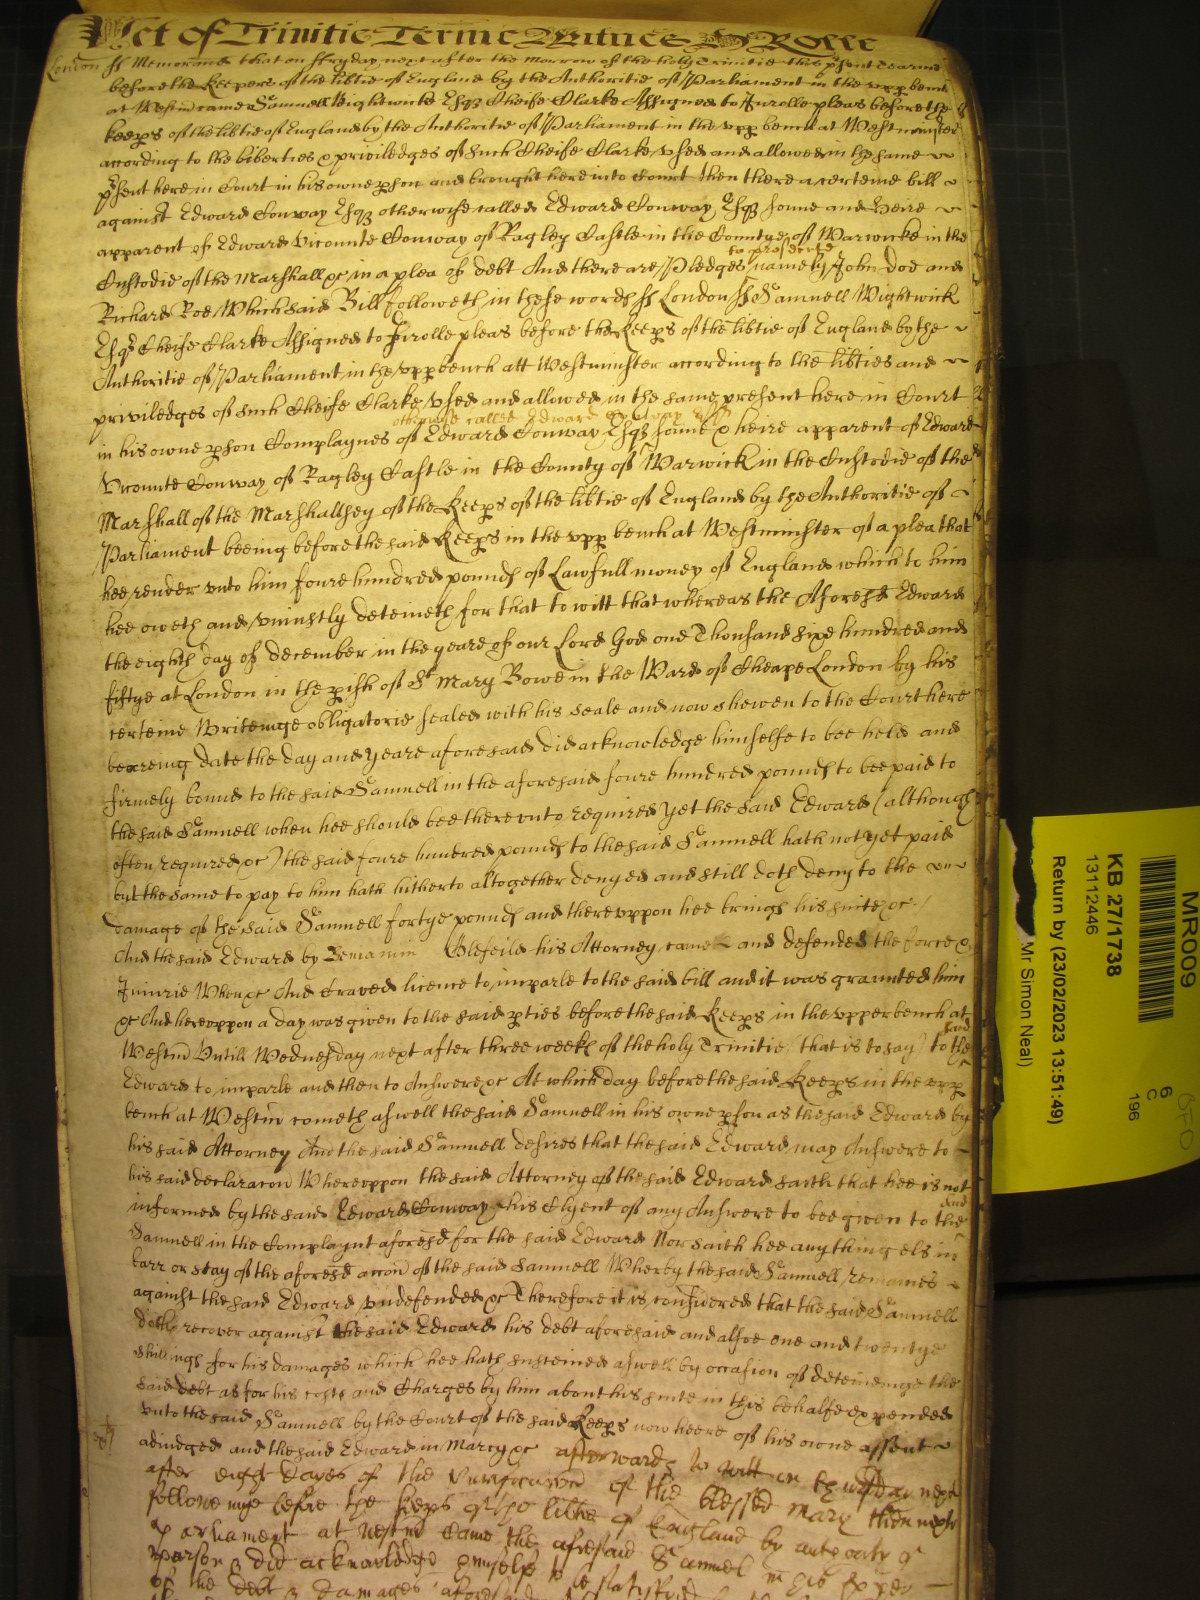 Yet Of Trinitie Terme Witnes Rolle
London ss Memorand that on ffryday next after the morrow of the holy Trinitie this psent Tearme
before the Keepers of the libtie of England by the Authoritie of Parliament in the upp bench
at Westm came Samuell Wightwick Esqz Cheife Clarke Assigned to Inrolle pleas before the
keeps of the libtie of England by the Authoritie of Parliament in the upp bench at Westminster
according to the liberties & priviledges of such Cheife Clarke used and allowed in the same
psent here in Court in his owne pson and brought here into Court then there a certeine bill
against Edward Conway Esqz otherwise called Edward Conway Esqz sonne and heire
apparent of Edward Vicounte Conway of Ragley Castle in the Countye of Warwicke in the
to prosecute
Custodie of the Marshall &c in a plea of debt And there are Pledges namely John Doe and
Richard Roe Which said Bill followeth in these words ss London ss Samuell Wightwick
Esqz Cheife Clarke Assigned to Inrolle pleas before the Keeps of the libtie of England by the
Authoritie of Parliament in the upp bench att Westminster according to the libties and
priviledges of such Cheife Clarke used and allowed in the same present here in Court
otherwise called Edward Conway Esqz
in his owne pson Complaynes of Edward Conway Esqz sonne & heire apparent of Edward
Vicounte Conway of Ragley Castle in the County of Warwick in the Custodie of the
Marshall of the Marshallsey of the Keeps of the libtie of England by the Authoritie of
Parliament beeing before the said Keeps in the upp bench at Westminster of a plea that
hee render unto him foure hundred pounds of Lawfull money of England which to him
hee oweth and uniustly deteineth for that to witt that whereas the Aforesd Edward
the eighth day of December in the yeare of our Lord God one Thousand sixe hundred and
fiftye at London in the pish of St Mary Bowe in the Ward of Cheape London by his
certeine Writeinge obligatorie sealed with his seale and now shewen to the Court here
beareing date the day and yeare aforesaid did acknowledge himselfe to bee held and
firmely bound to the said Samuell in the aforesaid foure hundred pounds to bee paid to
the said Samuell when hee should bee there unto required yet the said Edward (although
often required &c) the said foure hundred pounds to the said Samuell hath not yet paid
but the same to pay to him hath hitherto altogether denyed and still doth deny to the
damage of the said Samuell fortye pounds and thereuppon hee brings his suite &c
And the said Edward by Beniamin Glefeild his Attorney came and defended the force &
Iniurie When &c And Craved licence to imparle to the said bill and it was graunted him
&c And hereuppon a day was given to the said pties before the said Keeps in the upper bench at
said
Westm Untill Wednesday next after three weeks of the holy Trinitie that is to say to the
Edward to imparle and then to Answere &c At which day before the said Keeps in the upp
bench at Westm cometh aswell the said Samuell in his owne pson as the said Edward by
his said Attorney And the said Samuell desires that the said Edward may Answere to
his said declaracon Whereuppon the said Attorney of the said Edward saith that hee is not
said
informed by the said Edward Conway his Clyent of any Answere to bee given to the
Samuell in the Complaynt aforesd for the said Edward Nor saith hee any thing els in
barr or stay of the aforesd accon of the said Samuell Wherby the said Samuell remaines
against the said Edward undefended &c Therefore it is considered that the said Samuell
doth recover against the said Edward his debt aforesaid and alsoe one and twentye
shillings for his damages which hee hath susteined aswell by occasion of deteineinge the
said debt as for his costs and Charges by him about his suite in this behalfe expended
unto the said Samuell by the Court of the said Keeps now heere of his owne assent
adiudged and the said Edward in Marcy &c afterwards to witt on next
after eight dayes of the Purificacon of the blessed Mary then next
followeinge before the Keeps of the libtie of England by authoritie of
Parliament at Westm came the aforesaid Samuel in his pper
person & did acknowledge himselfe to be satisfied
of the debt & damages aforesaid
MR009
KB 27/1738
13112446
Return by (23/02/2023 13:51:49)
Mr Simon Neal)
6
C
196